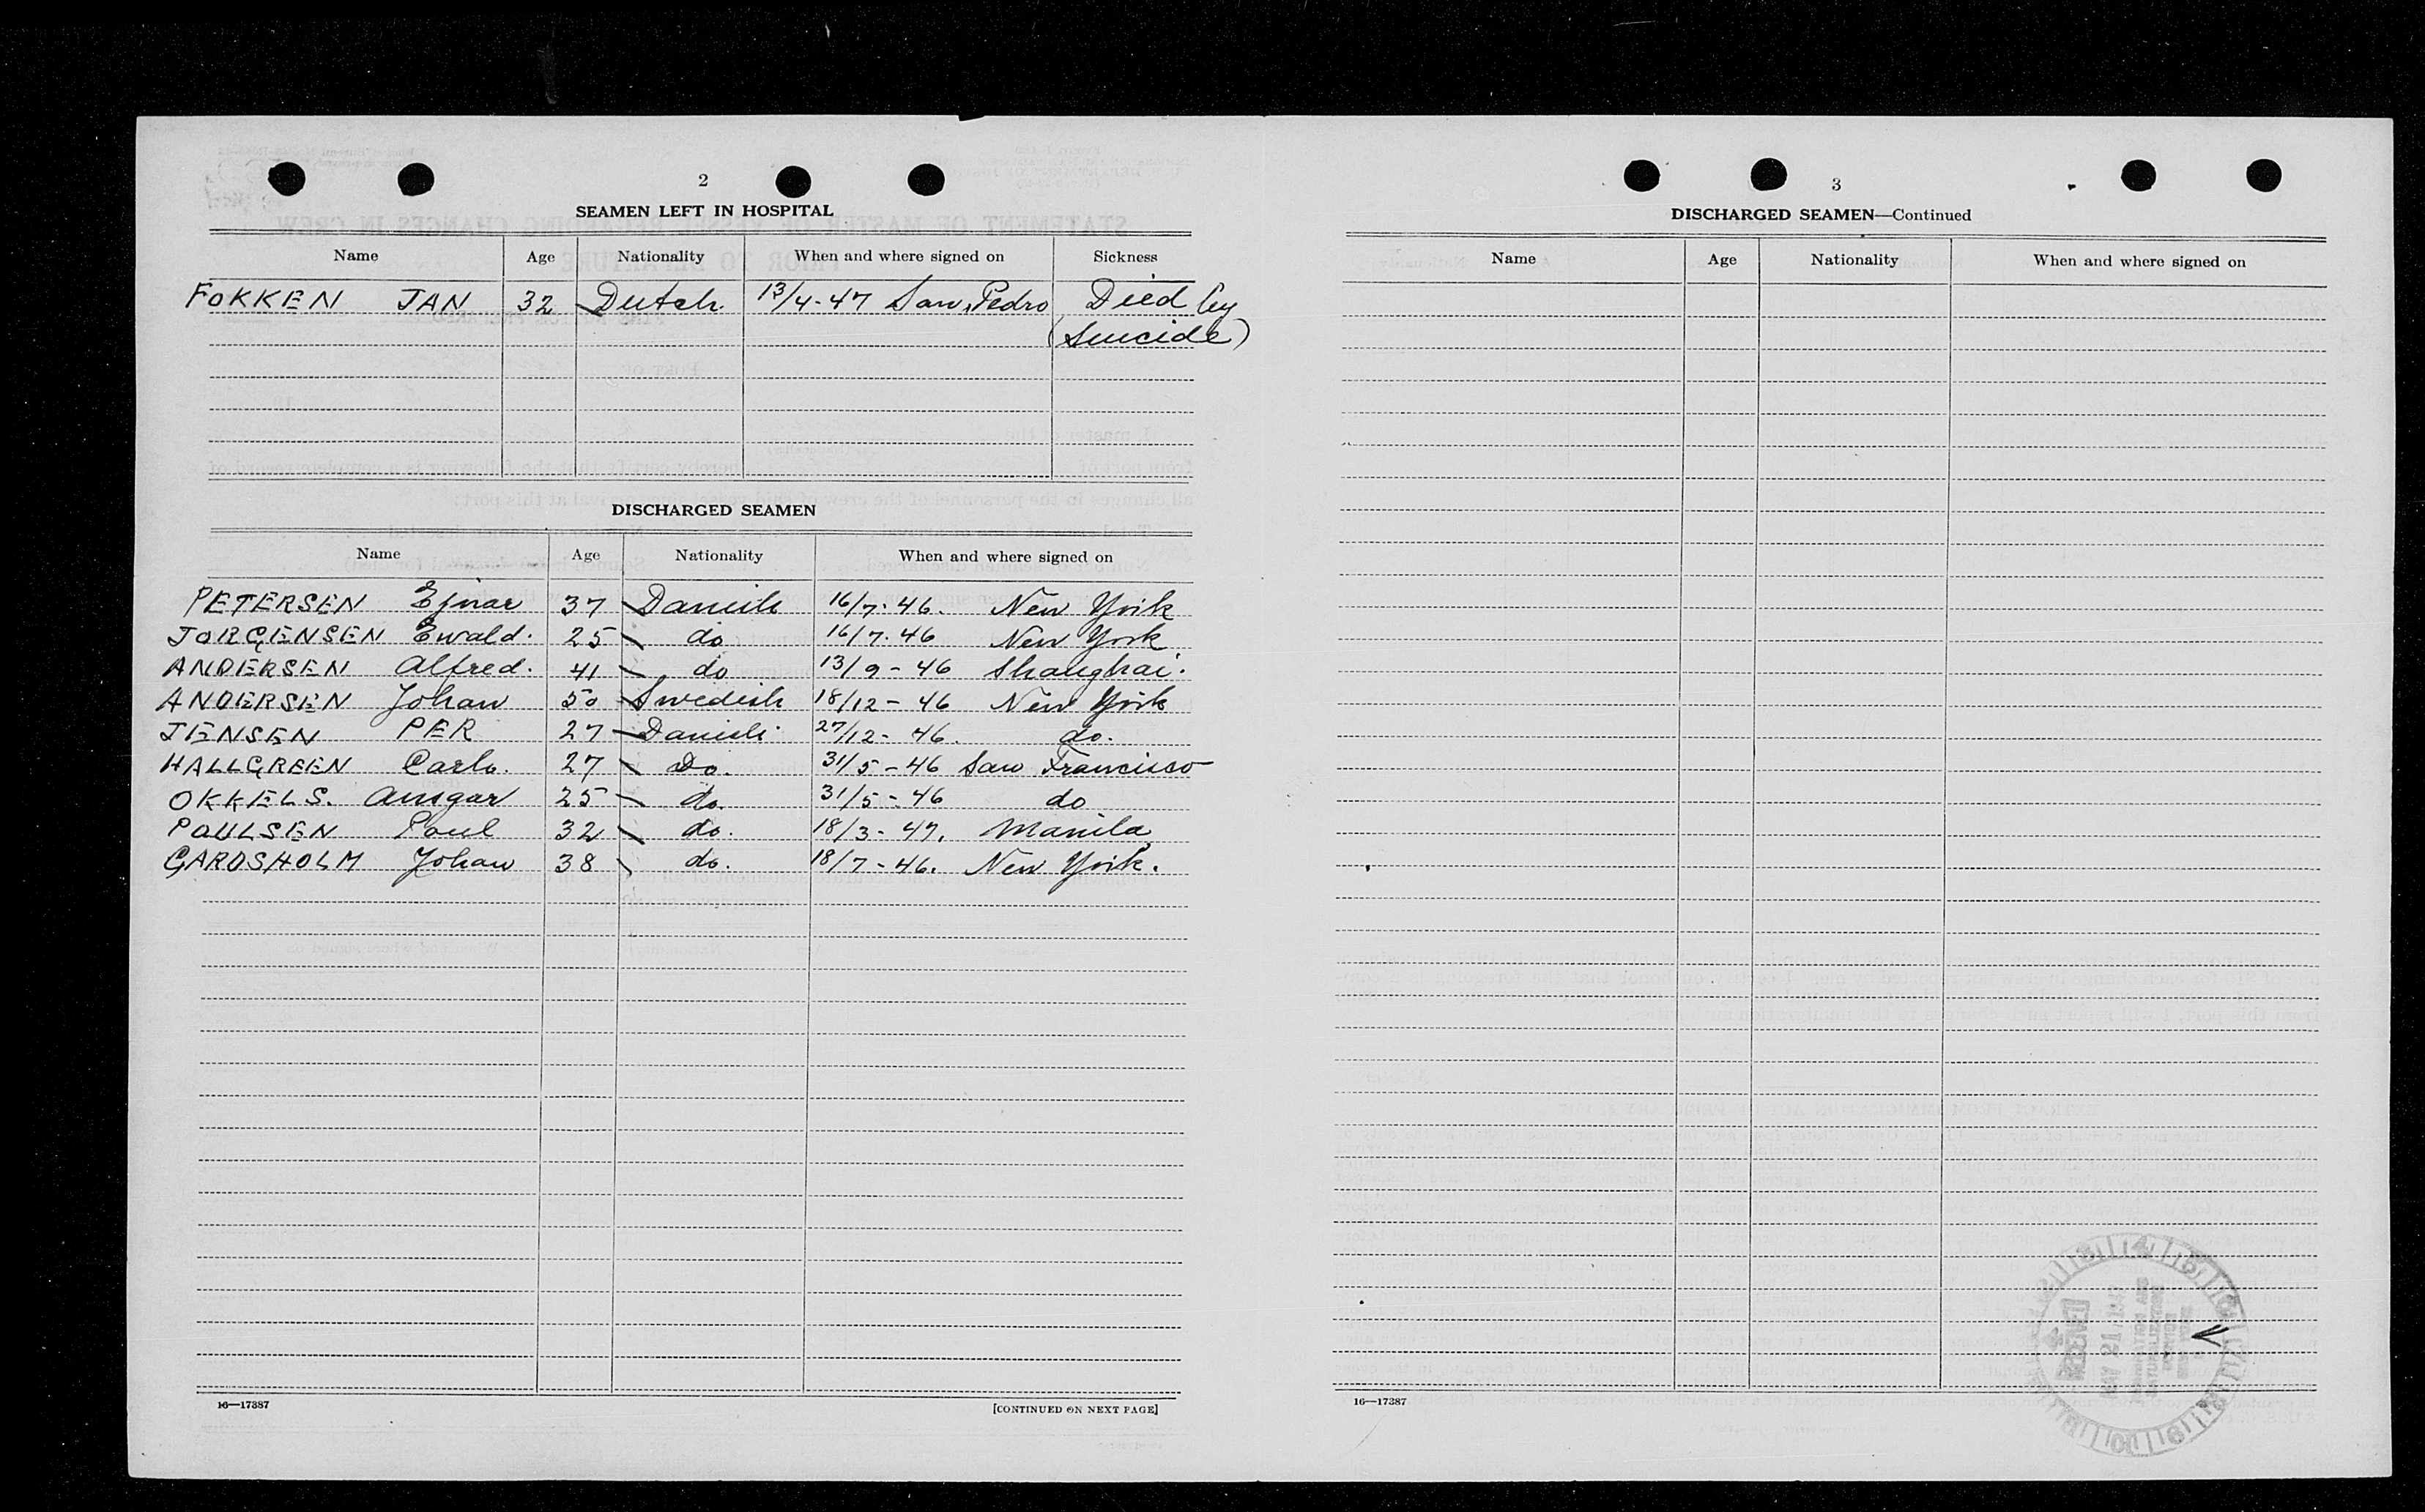 2
SEAMEN LEFT IN HOSPITAL
Name Age Nationality When and where signed on Sickness
FOKKEN JAN 32 Dutch. 13/4-47 San Pedro Died by
(Suicide)
DISCHARGED SEAMEN
Name Age Nationality When and where signed on
PETERSEN Ejnar 37 Danish 16/7-46. New York
JORGENSEN Ewald. 25 do 16/7-46 New York
ANDERSEN Alfred. 41 do 13/9-46 Shanghai.
ANDERSEN Johan 50 Swedish 18/12-46 New York
JENSEN PER 27 Danish 27/12-46. do.
HALLGREEN Carlo. 27 Do. 31/5-46 San Francisco
OKKELS. Ansgar 25 do. 31/5-46 do
POULSEN Poul 32 do. 18/3-47. Manila
GARDSHOLM Johan 38 do. 18/7-46. New York.
16—17387
[CONTINUED ON NEXT PAGE]
3
DISCHARGED SEAMEN—Continued
Name Age Nationality When and where signed on
16—17387